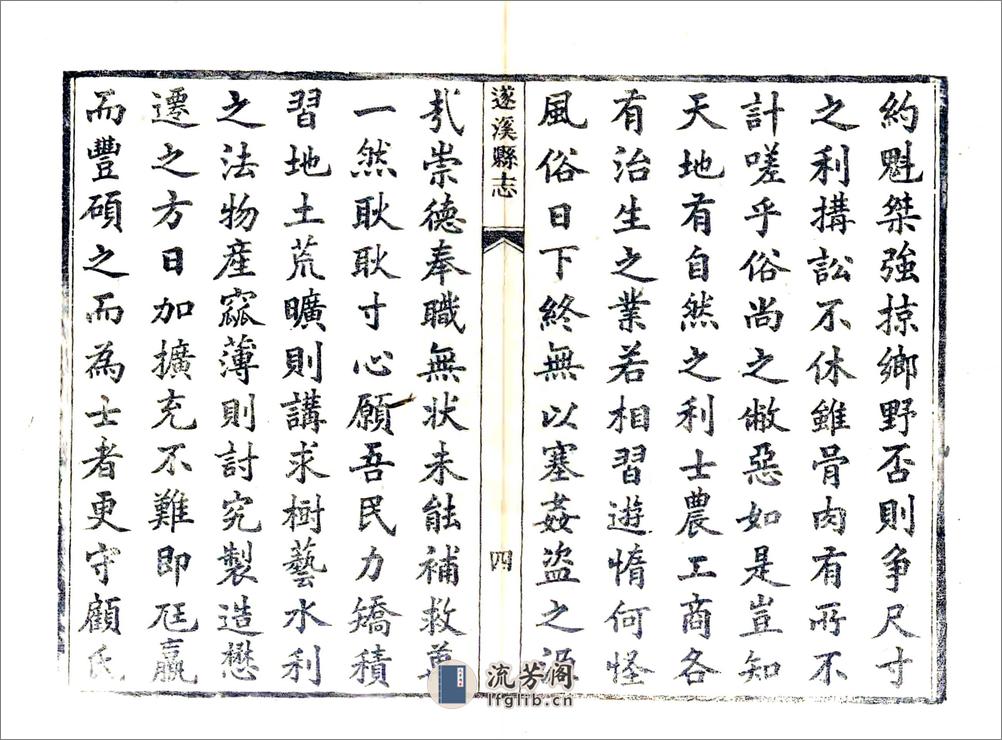 約魁桀強掠鄉野否則争尺寸
之利搆訟不休雖骨肉有所不
計嗟乎俗尚之敝惡如是豈知
天地有自然之利士農工商各
有治生之業若相習遊惰何怪
風俗日下終無以塞姦盜之禍
遂溪縣志
四
崇德奉職無状未能補救萬
一然耿耿寸心願吾民力矯積
習地土荒曠則講求樹藝水利
之法物產窳薄則討究製造懋
遷之方日加擴充不難即尫羸
而豐碩之而為士者更守顧氏
流芳阁
lfglib.cn